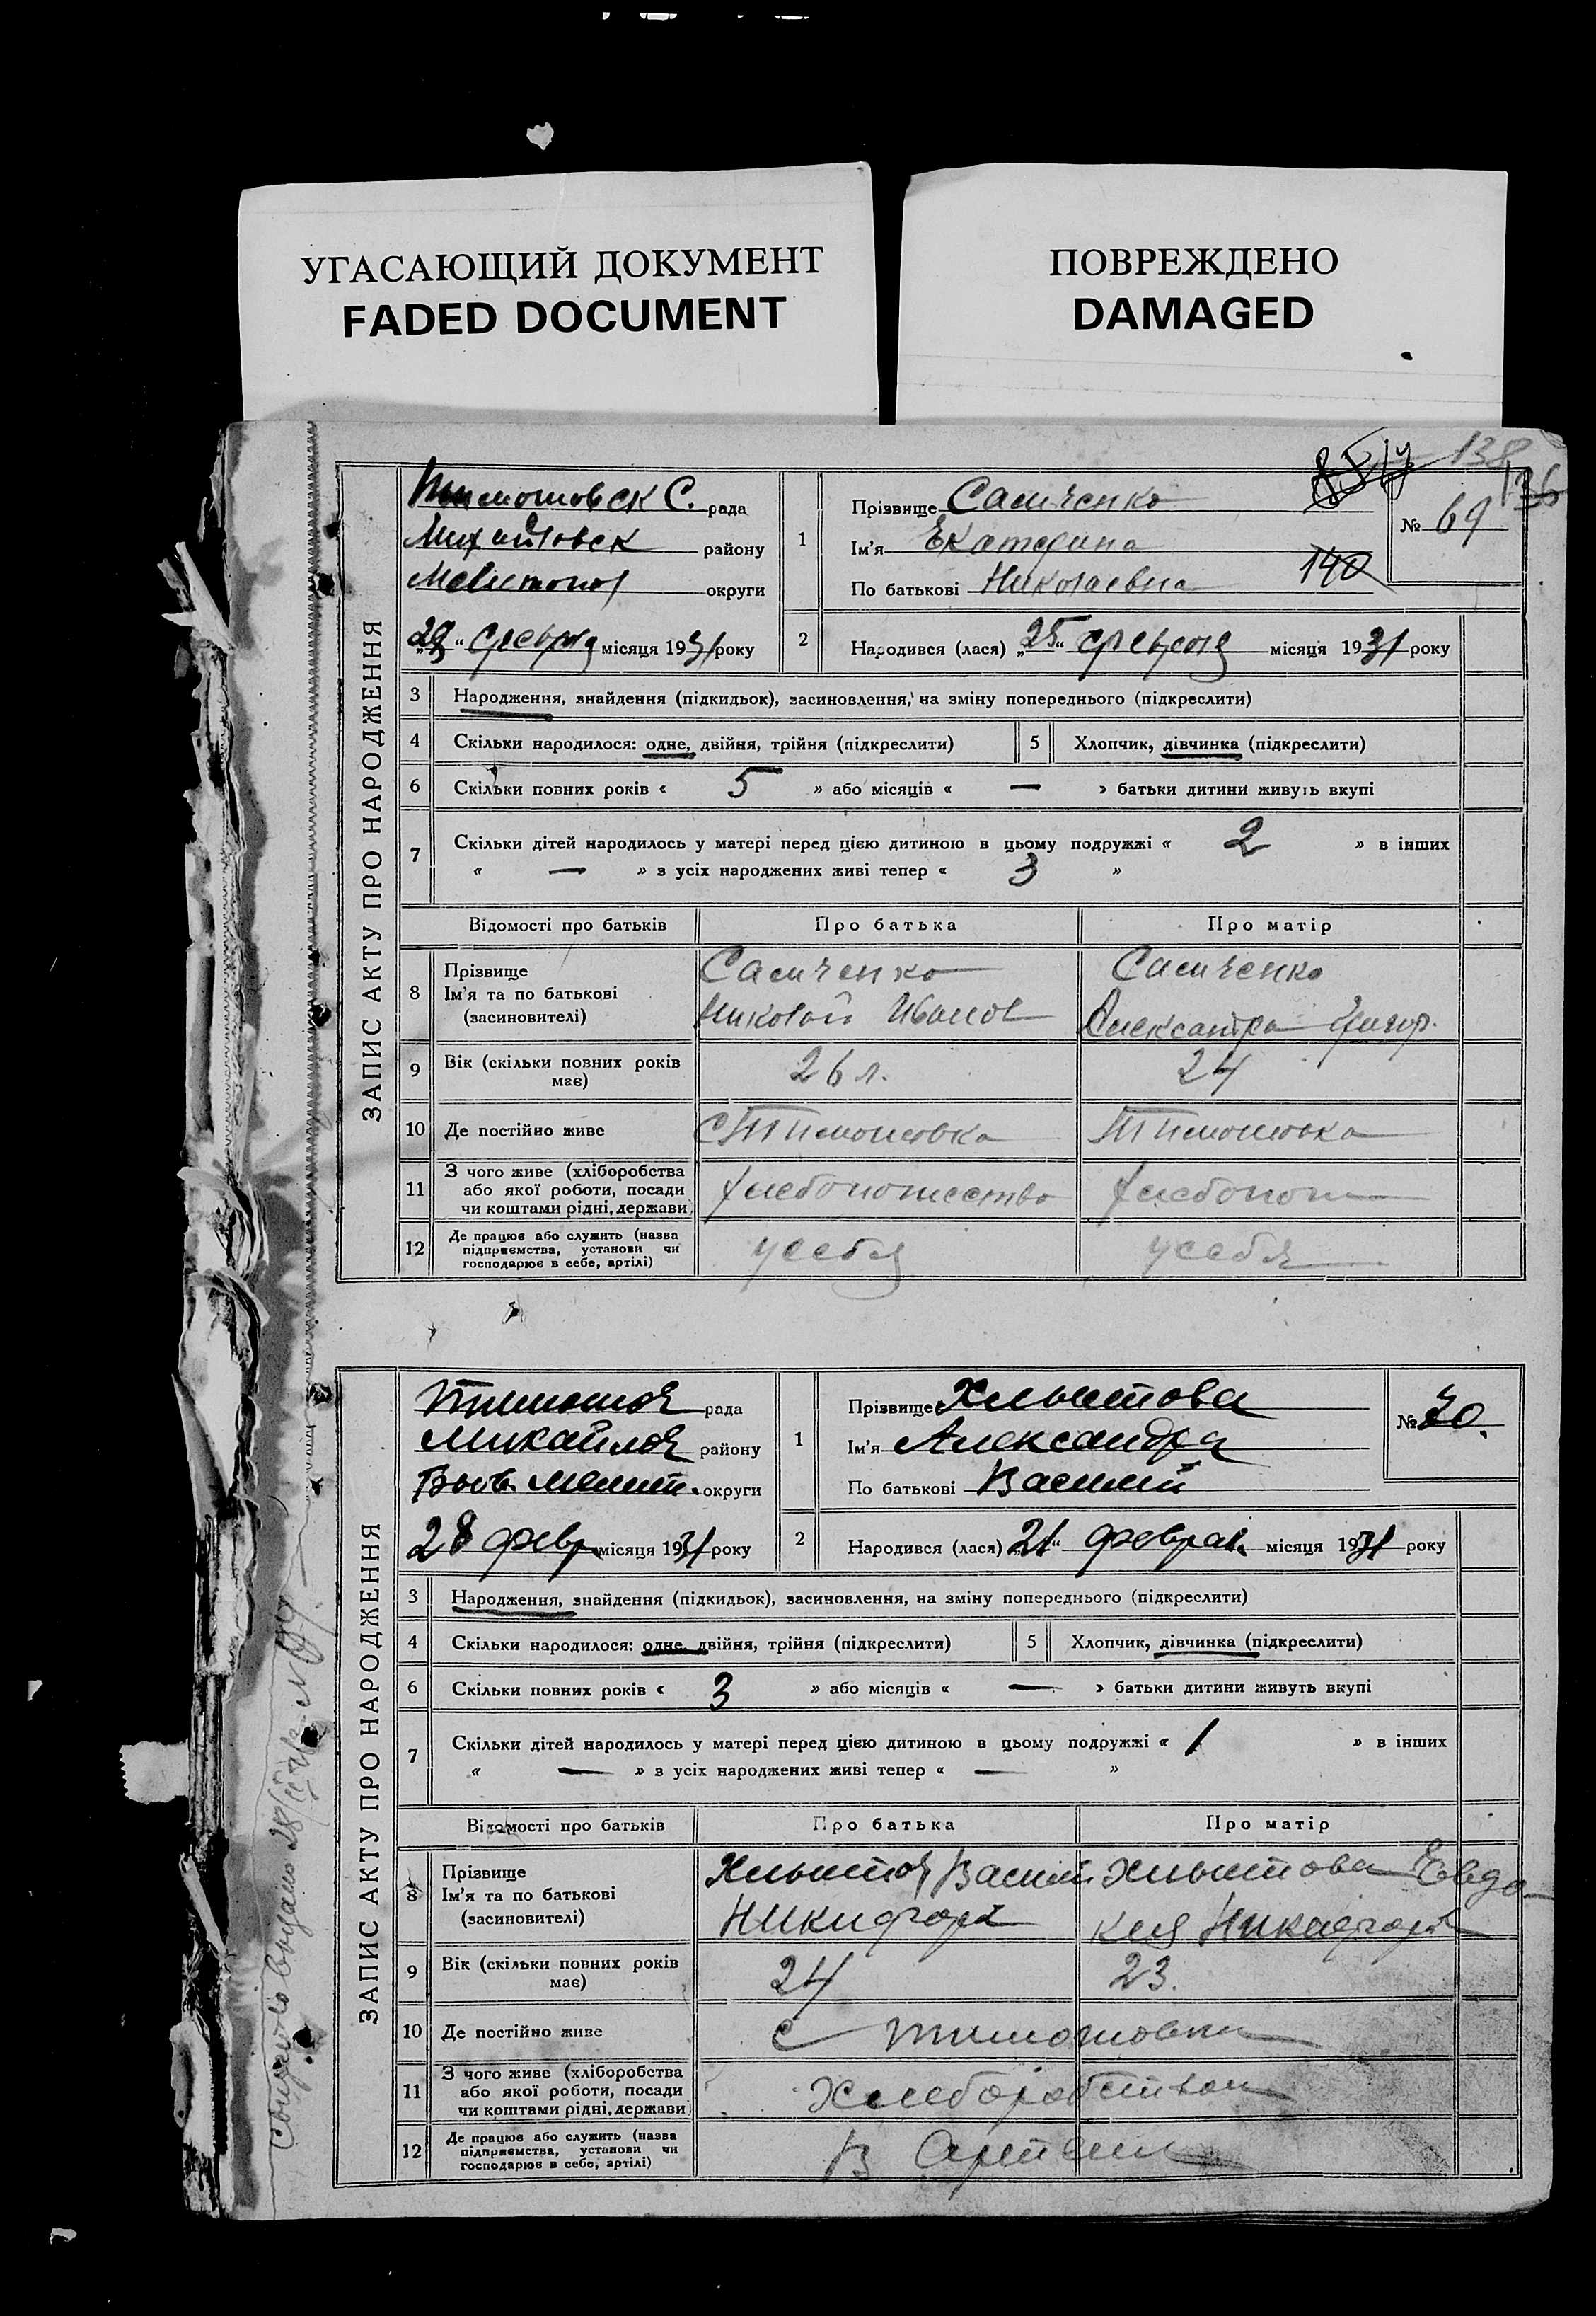 УГАСАЮЩИЙ ДОКУМЕНТ
FADED DOCUMENT
ПОВРЕЖДЕНО
DAMAGED
138
136
ЗАПИС АКТУ ПРО НАРОДЖЕННЯ
Тимошовск С. рада
Михайловск району
Мелитопол округи
28 февраля місяця 1931 року
1 Прізвище Самченко
Ім'я Екатерина
По батькові Николаевна
140
№ 69
2 Народився (лася) „25“ февраля місяця 1931 року
3 Народження, знайдення (підкидьок), засиновлення, на зміну попереднього (підкреслити)
4 Скільки народилося: одне, двійня, трійня (підкреслити) 5 Хлопчик, дівчинка (підкреслити)
6 Скільки повних років « 5 » або місяців « — » батьки дитини живуть вкупі
7 Скільки дітей народилось у матері перед цією дитиною в цьому подружжі « 2 » в інших
« — » з усіх народжених живі тепер « 3 »
Відомості про батьків Про батька Про матір
8 Прізвище Самченко Самченко
Ім'я та по батькові Николай Иванов Александра Григор.
(засиновителі)
9 Вік (скільки повних років має) 26 л. 24
10 Де постійно живе С Тимошовка Тимошовка
11 З чого живе (хліборобства
або якої роботи, посади
чи коштами рідні, держави) хлебопашество хлебопаш
12 Де працює або служить (назва
підприємства, установи чи
господарює в себе, артілі) у себя у себя
ЗАПИС АКТУ ПРО НАРОДЖЕННЯ
Тимошов рада
Михайлов району
Бывш. Мелит. округи
28 февр місяця 1931 року
1 Прізвище Хлыстова
Ім'я Александра
По батькові Василий
№ 70.
2 Народився (лася) „21“ феврал. місяця 1931 року
3 Народження, знайдення (підкидьок), засиновлення, на зміну попереднього (підкреслити)
4 Скільки народилося: одне, двійня, трійня (підкреслити) 5 Хлопчик, дівчинка (підкреслити)
6 Скільки повних років « 3 » або місяців « — » батьки дитини живуть вкупі
7 Скільки дітей народилось у матері перед цією дитиною в цьому подружжі « 1 » в інших
« — » з усіх народжених живі тепер « — »
Відомості про батьків Про батька Про матір
8 Прізвище Хлыстов Васили Хлыстова Евдо
Ім'я та по батькові Никифор кия Никифор
(засиновителі)
9 Вік (скільки повних років має) 24 23.
10 Де постійно живе с Тимошовки
11 З чого живе (хліборобства
або якої роботи, посади
чи коштами рідні, держави) Хлеборобством
12 Де працює або служить (назва
підприємства, установи чи
господарює в себе, артілі) В Артели